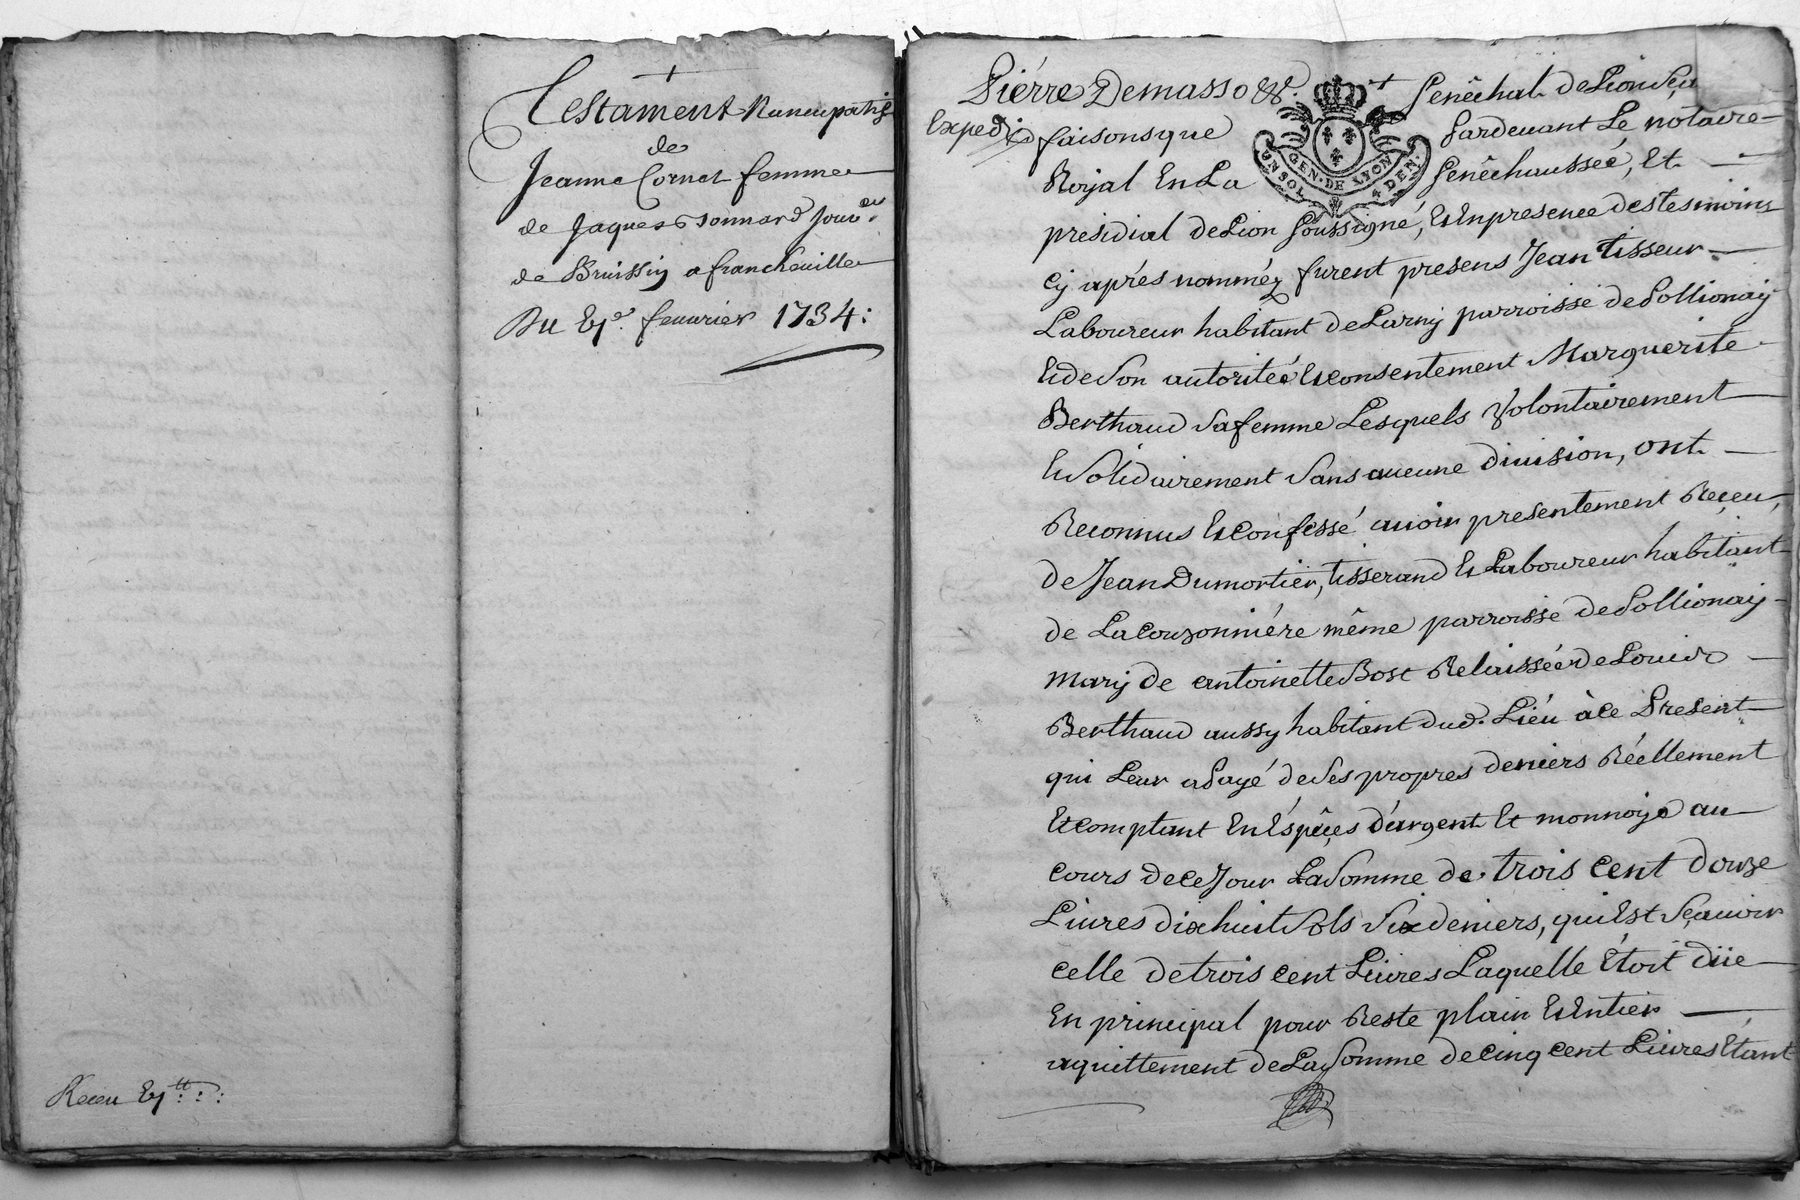 Testament Nuncupatif
de
Jeanne Cornet femme
de Jaques Donnard Jour.er
de Bruissin a francheuille
Du feuurier 1734:
Receu
Pierre Demasso &c. Senêchal de Lion Sça
Expedié
faisons que pardeuant Le notaire
Royal En La Senêchaussée, Et
presidial de Lion soussigné, Et En presence des tesmoins
Cy aprés nomméz furent presens Jean tisseur
Laboureur habitant de Larny parroisse de Pollionay
Et de Son autorité Et consentement Marguerite
Berthaud Sa femme Lesquels Volontairement
Et Solidairement Sans aucune diuision, ont
Reconnus Et confessé auoir presentement Reçeu,
de Jean Dumortier, tisserand Et Laboureur habitant
de La Couzonniére même parroisse de Pollionay
mary de antoinette Bost Relaissée de Louis
Berthaud aussy habitant dud. Liéu à ce Present
qui Leur a Payé de Ses propres deniers Réellement
Et comptant En Éspêçes d'argent Et monnoye au
cours de ce Jour La Somme de trois cent douze
Liures dix huit Sols Six deniers, qui Est Sçauoir
celle de trois cent Liures Laquelle Étoit düe
En principal pour Reste plain Et Entier
aquittement de La Somme de cinq cent Liures Étant
GEN. DE LYON
UN SOL 4 DEN.